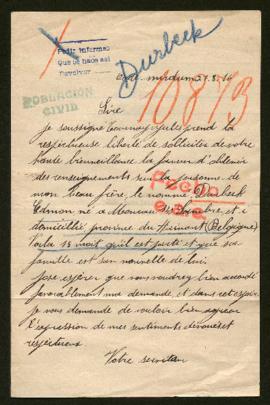 Pedir informes
que se hace así
Durbeck
21.8.16
10873
POBLACION
CIVIL
Sire
Je soussigné Tournay Jules prend la
respectueuse liberté de solliciter de votre
haute bienveillance la faveur d'obtenir
des renseignements sur la personne de
mon beau frère le nommé Durbeck
Edmon né a Monceau sur Sambre et i
domicilié, province du Hainaut (Belgique)
Voila 18 mois qu'il est parti et que sa
famille est san nouvelle de lui.
Jose espérer que vous voudrez bien accordé
favorablement ma demande, et dans cet espoir
je vous demande de vouloir bien agréer
l'expression de mes sentiments dévoués et
respectueux
Votre serviteur